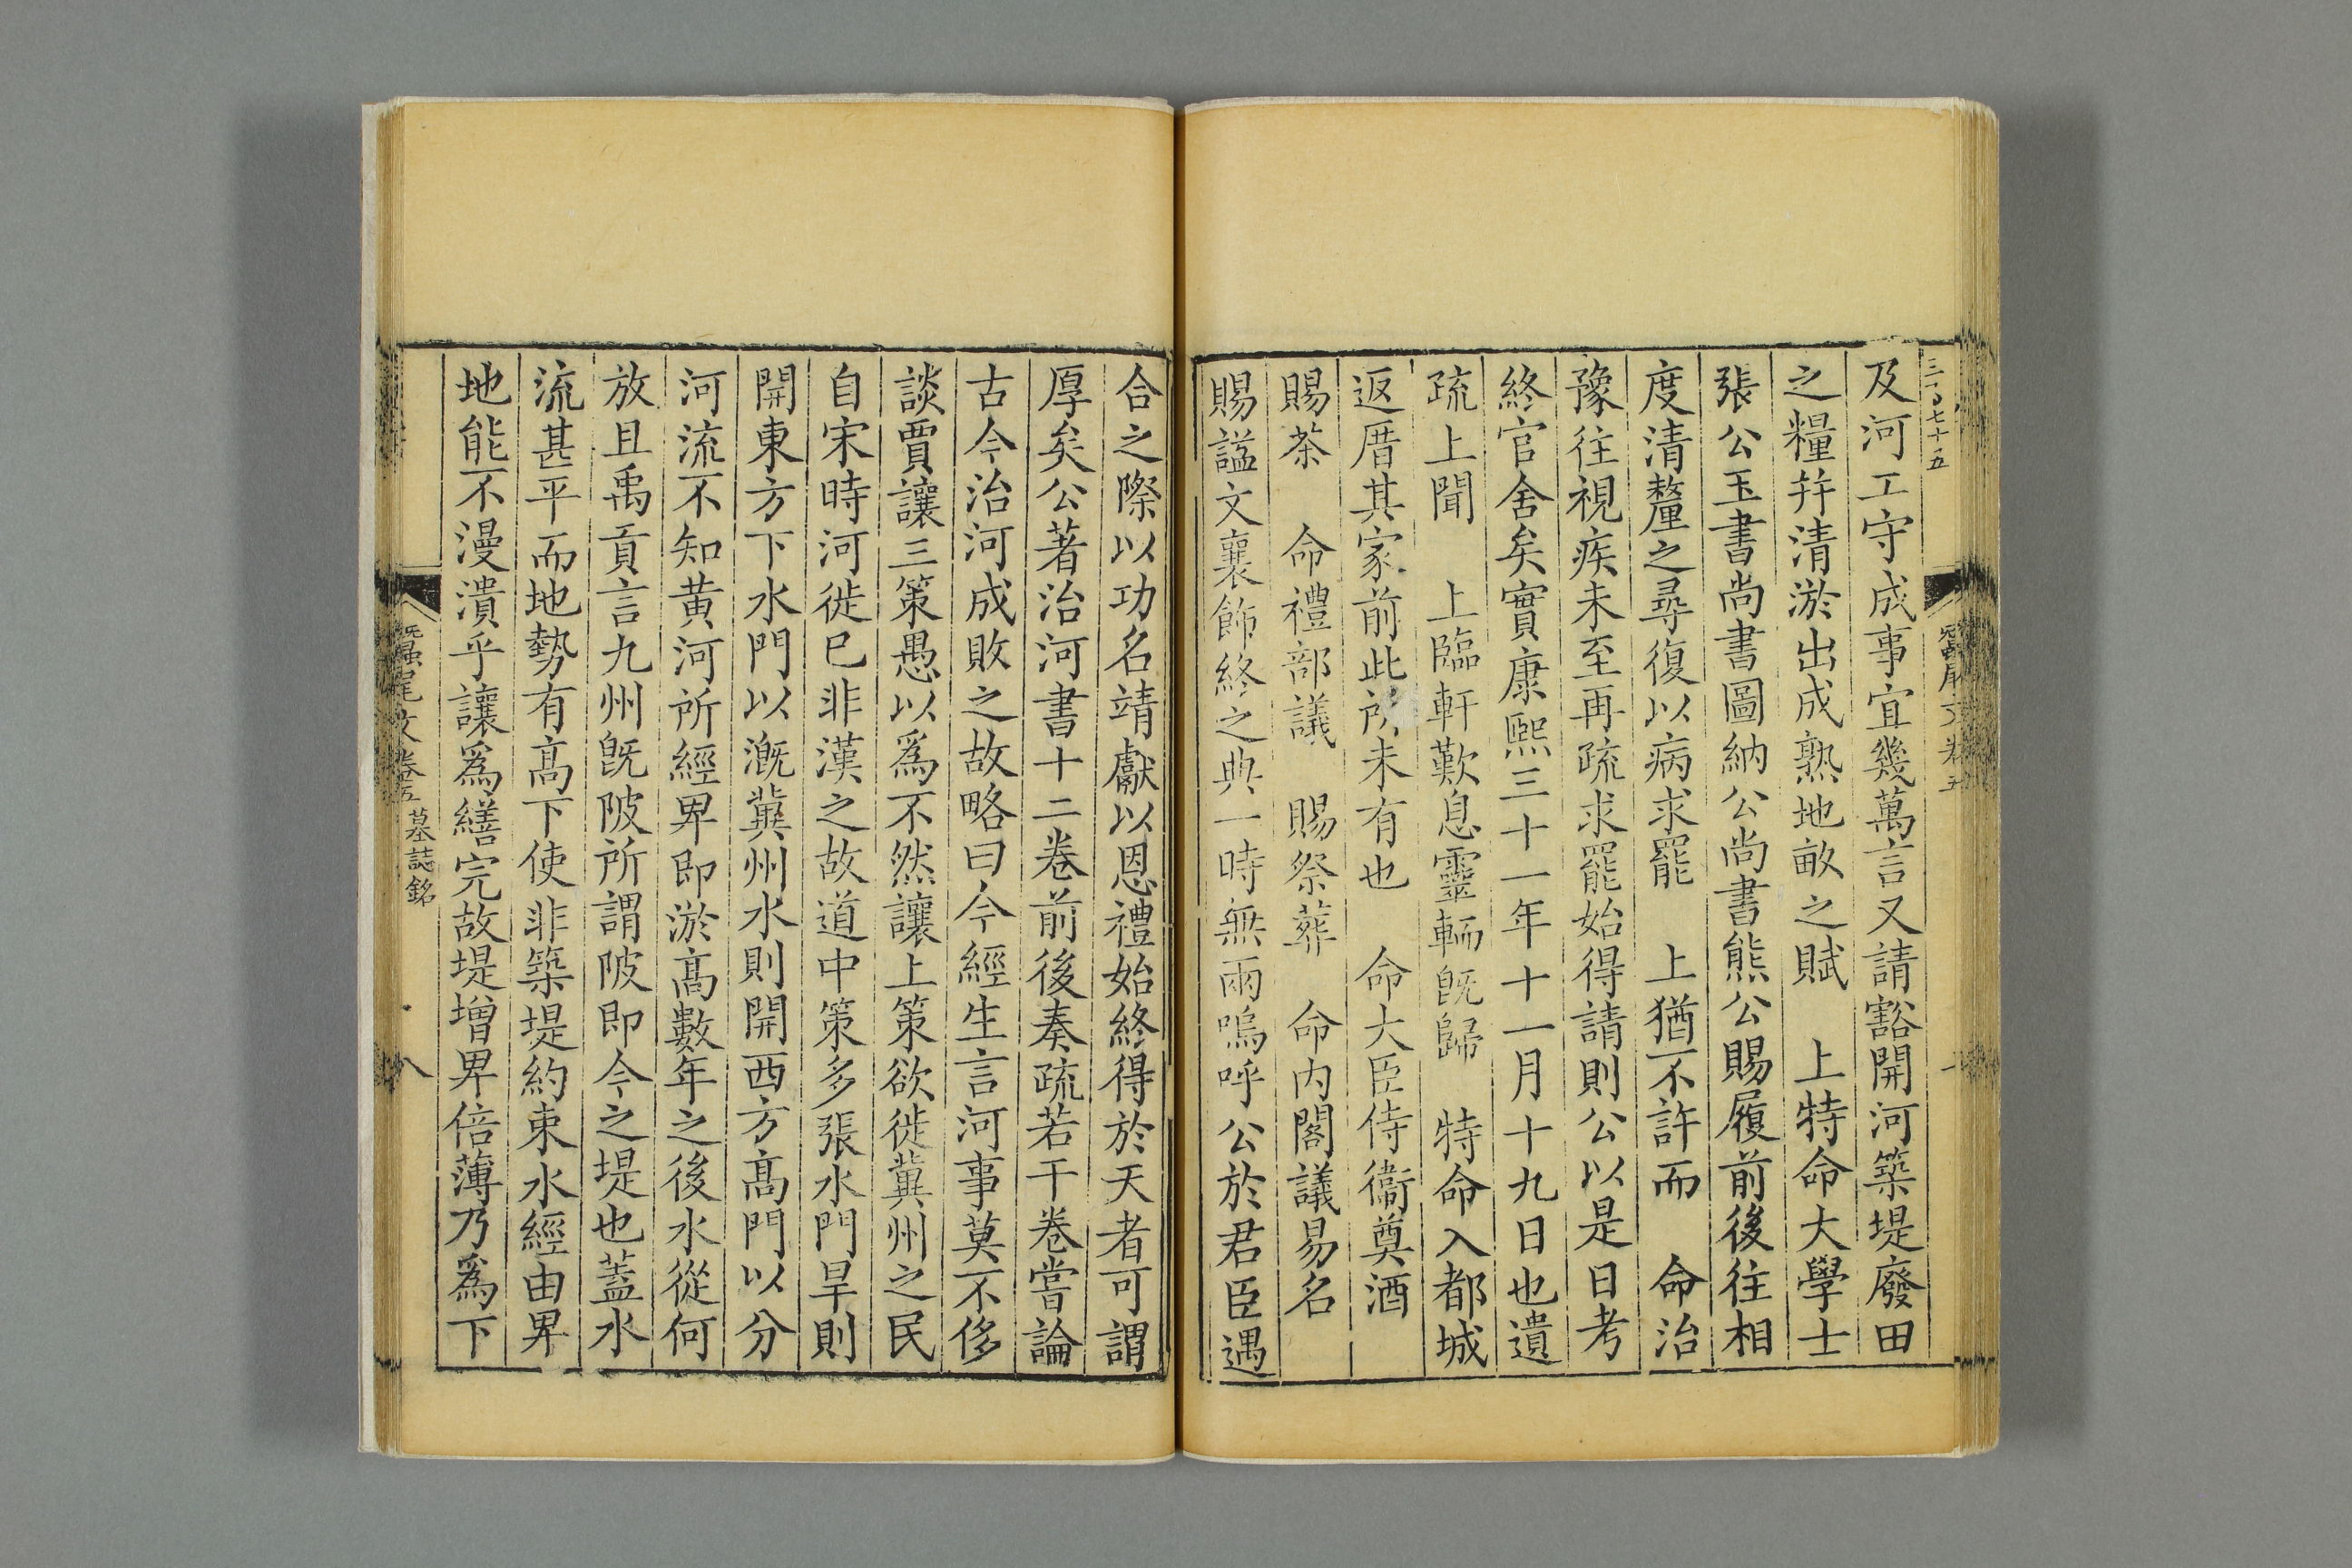 及河工守成事宜幾萬言又請豁開河築堤廢田
之糧幷清淤出成熟地畝之賦　上特命大學士
張公玉書尚書圖納公尚書熊公賜履前後往相
度清釐之尋復以病求罷　上猶不許而　命治
豫往視疾未至再疏求罷始得請則公以是日考
終官舍矣實康熙三十一年十一月十九日也遺
疏上聞　上臨軒歎息靈輀旣歸　特命入都城
返厝其家前此所未有也　命大臣侍衞奠酒
賜茶　命禮部議　賜祭葬　命內閣議易名
賜諡文襄飾終之典一時無兩嗚呼公於君臣遇
合之際以功名靖獻以恩禮始終得於天者可謂
厚矣公著治河書十二卷前後奏疏若干卷嘗論
古今治河成敗之故略曰今經生言河事莫不侈
談賈讓三策愚以爲不然讓上策欲徙冀州之民
自宋時河徙已非漢之故道中策多張水門旱則
開東方下水門以漑冀州水則開西方高門以分
河流不知黃河所經卑卽淤高數年之後水從何
放且禹貢言九州旣陂所謂陂卽今之堤也蓋水
流甚平而地勢有高下使非築堤約束水經由卑
地能不漫潰乎讓爲繕完故堤增卑倍薄乃爲下
蠶尾文卷五　墓誌銘　八